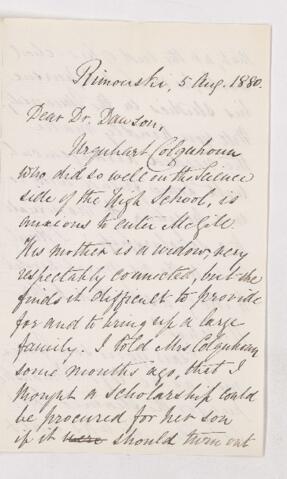 Rimouski, 5 Aug. 1880.
Dear Dr. Dawson,
Urquhart Colquhoun
who did so well on the Science
side of the High School, is
anxious to enter McGill.
His mother is a widow, very
respectably connected, but she
finds it difficult to provide
for and to bring up a large
family. I told Mrs Colquhoun
some months ago, that I
thought a scholarship could
be procured for her son
if it were should turn out